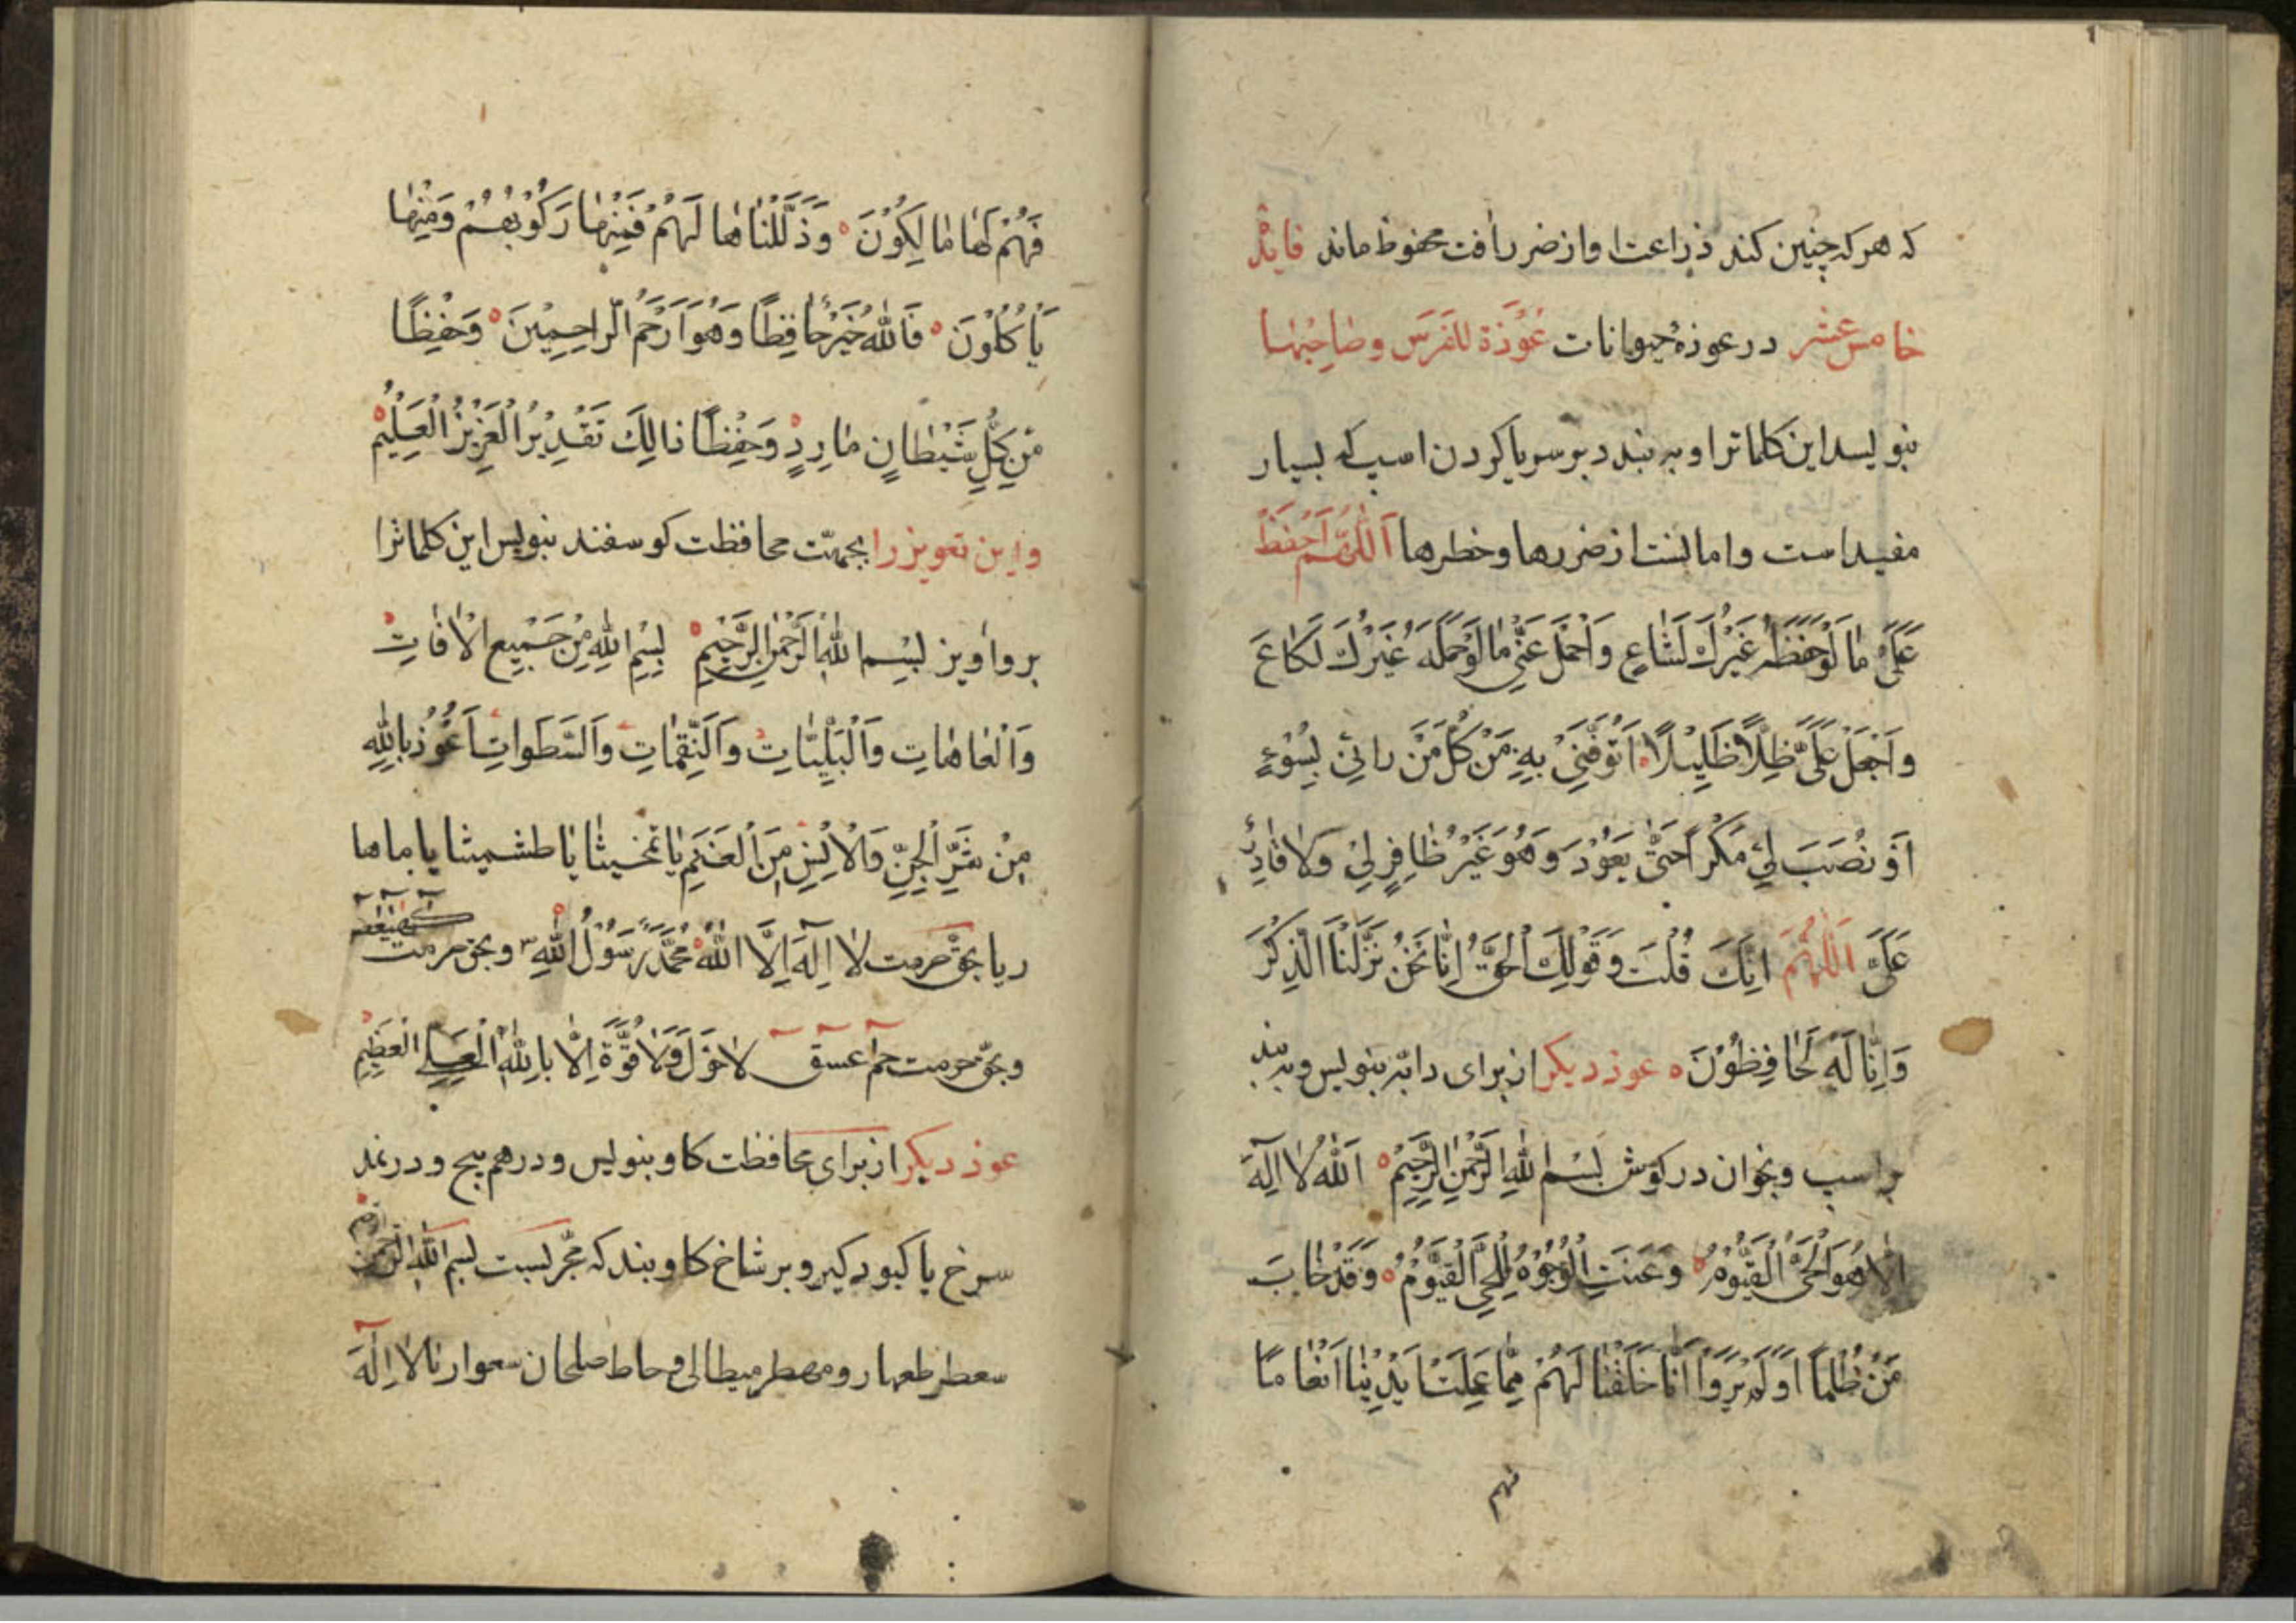 که هرکه چنین کند ذراعت او از ضرر رافت محفوظ ماند فایدهٔ
خامس عشر در عوذهٔ حیوانات عُوْذَة للفَرَسِ وصٰاحِبُهٰا
بنویسد این کلماترا و به بندد بر سر یا کردن اسب که بسیار
مفید است و امانست از ضررها و خطرها اَللّٰهُمَّ احْفَظْ
عَلَیَّ مٰا لَوْ حَفِظَهُ غَیْرُكَ لَضٰاعَ وَاحْمَلْ عَنّٖی مٰا لَوْ حَمَلَهُ غَیْرُكَ لَكٰاعَ
وَاجْعَلْ عَلَیَّ ظِلًّا ظَلِیْلًا اَتَوَقّٰی بِهِ مِنْ كُلِّ مَنْ رامَنِیْ بِسُوْءٍ
اَوْ نَصَبَ لِیْ مَكْرًا حَتّٰی یَعُوْدَ وَهُوَ غَیْرُ ظٰافِرٍ لِیْ وَلا قٰادِرٍ
عَلَیَّ اَللّٰهُمَّ اِنَّكَ قُلْتَ وَقَوْلُكَ الْحَقُّ اِنّٰا نَحْنُ نَزَّلْنَا الذِّكْرَ
وَاِنّٰا لَهُ لَحٰافِظُوْنَ عوذ دیکر از برای دابّه بنویس و ببند
بر اسب و بخوان در کوش بِسْمِ اللهِ الرَّحْمٰنِ الرَّحِیْمِ اَللهُ لاٰ اِلٰهَ
اِلّٰا هُوَ الْحَیُّ الْقَیُّوْمُ وَعَنَتِ الْوُجُوْهُ لِلْحَیِّ الْقَیُّوْمِ وَقَدْ خٰابَ
مَنْ ظُلْمًا اَوَلَمْ یَرَوْا اَنّٰا خَلَقْنٰا لَهُمْ مِمّٰا عَمِلَتْ اَیْدِیْنٰا اَنْعٰامًا
فهم
فَهُمْ لَهٰا مٰالِكُوْنَ وَذَلَّلْنٰاهٰا لَهُمْ فَمِنْهٰا رَكُوْبُهُمْ وَمِنْهٰا
یَأْكُلُوْنَ فَاللهُ خَیْرٌ حٰافِظًا وَهُوَ اَرْحَمُ الرّٰاحِمِیْنَ وَحِفْظًا
مِّنْ كُلِّ شَیْطٰانٍ مٰارِدٍ وَحِفْظًا ذٰالِكَ تَقْدِیْرُ الْعَزِیْزِ الْعَلِیْمِ
و این تعویز را بجهتّ محافظت کوسفند بنویس این کلماترا
برو اویز بِسْمِ اللهِ الرَّحْمٰنِ الرَّحِیْمِ بِسْمِ اللهِ مِنْ جَمِیْعِ الْاٰفٰاتِ
وَالْعٰاهٰاتِ وَالْبَلِیّٰاتِ وَالنَّقِمٰاتِ وَالسَّطَواتِ اَعُوْذُ بِاللهِ
مِنْ شَرِّ الْجِنِّ وَالْاِنْسِ مِنَ الْغَنَمِ یٰا تمخیثا یٰا طشمیثا یا ماما
ریا بحق حرمت لاٰ اِلٰهَ اِلَّا اللهُ مُحَمَّدٌ رَسُوْلُ اللهِ و بحق حرمت كهيعص
و بحقّ حرمت حم عسق لا حَوْلَ وَلاٰ قُوَّةَ اِلّٰا بِاللهِ الْعَلِیِّ الْعَظِیْمِ
عوذ دیکر از برای محافظت کاو بنویس و درهم پیچ و در نمد
سرخ یا کبود کیر و بر شاخ کاو بند که مجّربست بسم اللهِ الرَّحْمٰنِ الرَّحیم
سعطر طعهار و مهطر میطالی و حاط صلحان سعوارنا لاٰ اِلٰهَ